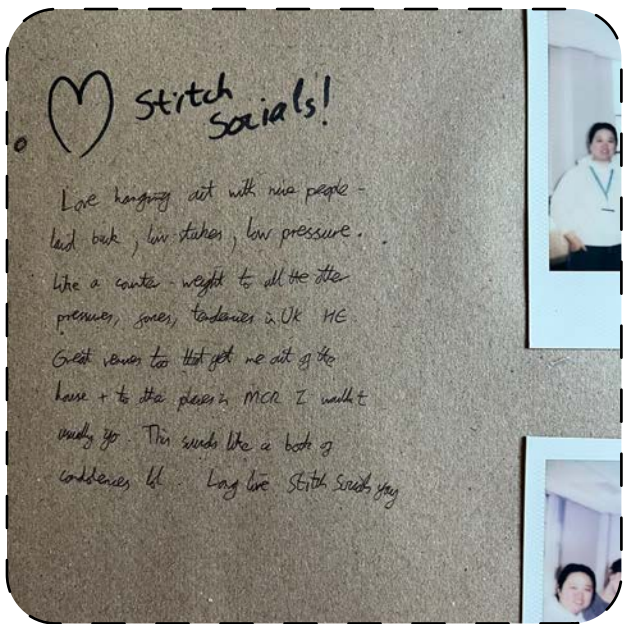 Stitch
Socials!
Love hanging out with nice people -
laid back, low stakes, low pressure.
Like a counter-weight to all the other
pressures, tendencies in UK HE.
Great venues too that get me out of the
house + to other places in MCR I wouldn't
usually go. This sounds like a book of
condolences lol. Long live Stitch Socials yay